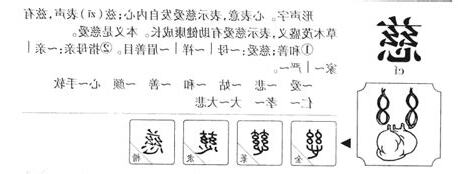 慈
cí
形声字。心表意,表示慈爱发自内心;兹(zī)表声,兹有
草木茂盛义,表示慈爱有助健康成长。本义是慈爱。
①和善;慈爱:~母|~祥|~眉善目。②指母亲:~亲|
家~|严~。
~爱 ~悲 ~姑 ~和 ~善 ~颜 心~心~手软
仁~ ~孝 ~大~大悲
金
篆
隶 慈
楷 慈